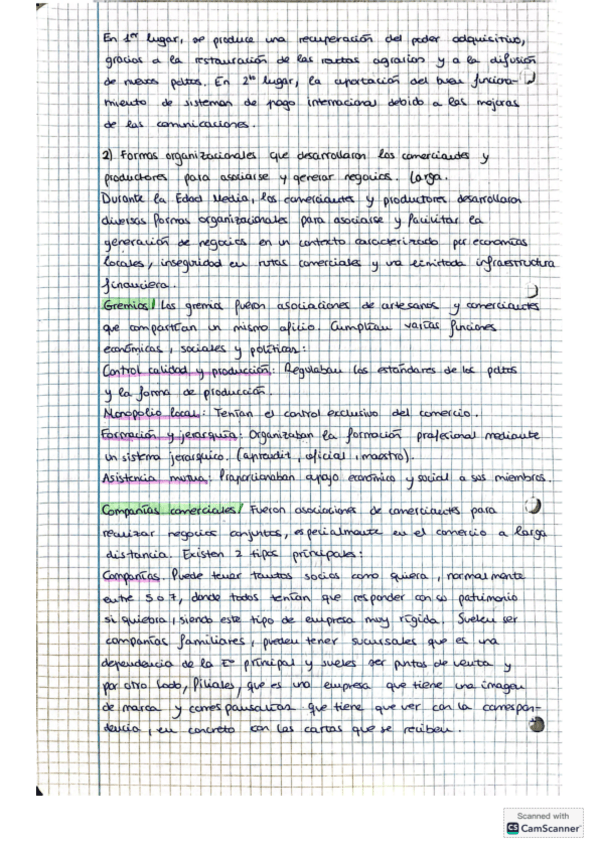 En 1er lugar, se produce una recuperación del poder adquisitivo,
gracias a la restauración de las rentas agrarias y a la difusión
de nuevos pdtos. En 2º lugar, la aportación del buen funciona-
miento de sistemas de pago internacional debido a las mejoras
de las comunicaciones.
2) Formas organizacionales que desarrollaron los comerciantes y
productores para asociarse y generar negocios. Larga.
Durante la Edad Media, los comerciantes y productores desarrollaron
diversas formas organizacionales para asociarse y facilitar la
generación de negocios en un contexto caracterizado por economías
locales, inseguridad en rutas comerciales y una limitada infraestructura
financiera.
Gremios/ Los gremios fueron asociaciones de artesanos y comerciantes
que compartían un mismo oficio. Cumplían varias funciones
económicas, sociales y políticas:
Control calidad y producción: Regulaban los estándares de los pdtos
y la forma de producción.
Monopolio local: Tenían el control exclusivo del comercio.
Formación y jerarquía: Organizaban la formación profesional mediante
un sistema jerárquico. (aprendiz, oficial, maestro).
Asistencia mutua: Proporcionaban apoyo económico y social a sus miembros.
Compañías comerciales/ Fueron asociaciones de comerciantes para
realizar negocios conjuntos, especialmente en el comercio a larga
distancia. Existen 2 tipos principales:
Compañías. Puede tener tantos socios como quiera, normalmente
entre 5 o 7, donde todos tenían que responder con su patrimonio
si quiebra, siendo este tipo de empresa muy rígida. Suelen ser
compañías familiares, pueden tener sucursales que es una
dependencia de la Eª principal y sueles ser puntos de venta y
por otro lado, filiales, que es una empresa que tiene una imagen
de marca y corresponsalías que tiene que ver con la correspon-
dencia, en concreto con las cartas que se reciben.
Scanned with
CS CamScanner